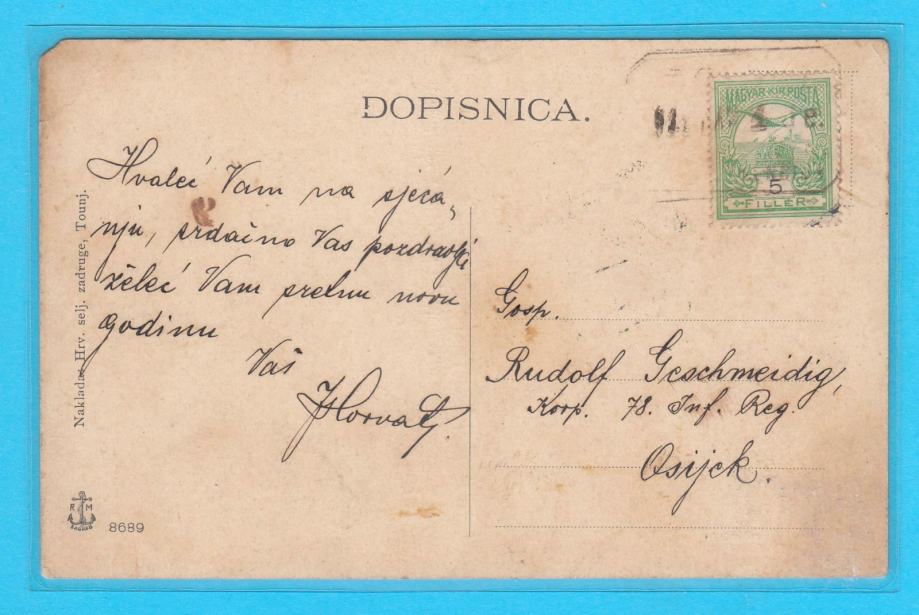 DOPISNICA.
MAGYAR·KIR·POSTA
5
FILLÉR
Hvaleć Vam na sjeća„
nju, srdačno Vas pozdravlja
želeć Vam sretnu novu
godinu
Vaš
Horvat
Gosp.
Rudolf Geschmeidig,
Korp. 78. Inf. Reg.
Osijek.
Naklada: Hrv. selj. zadruge, Tounj.
R M
8689